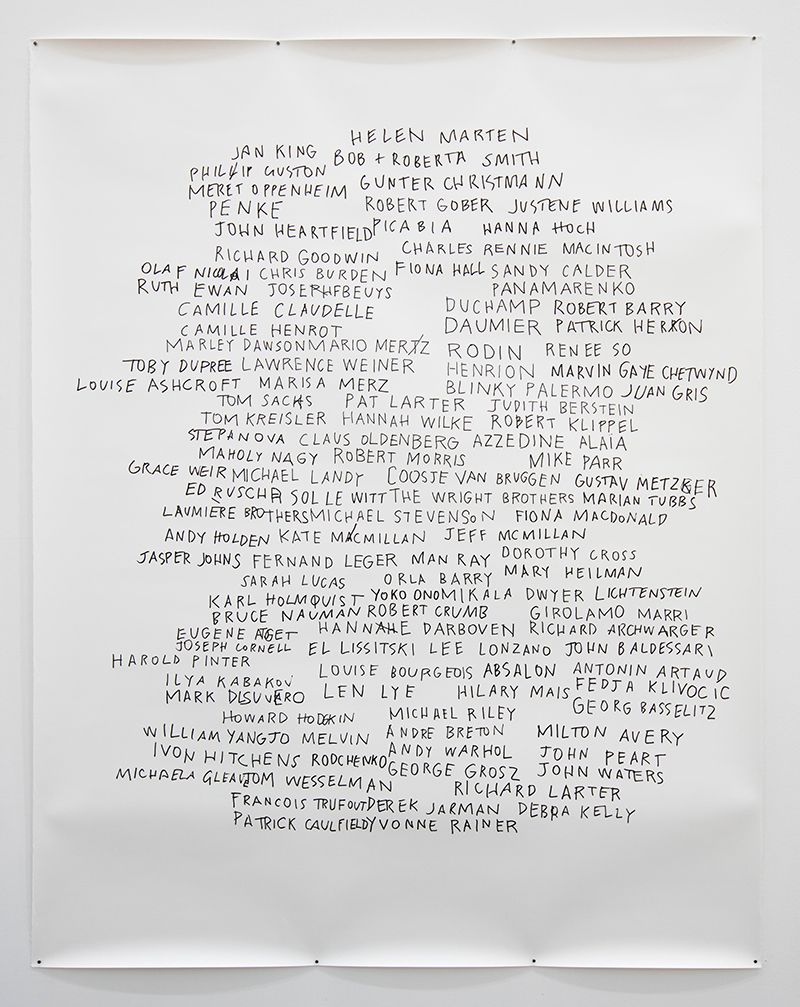 HELEN MARTEN
JAN KING BOB + ROBERTA SMITH
PHILLIP GUSTON
MERET OPPENHEIM GUNTER CHRISTMANN
PENKE ROBERT GOBER JUSTENE WILLIAMS
JOHN HEARTFIELD PICABIA HANNA HOCH
RICHARD GOODWIN CHARLES RENNIE MACINTOSH
OLAF NICOLAI CHRIS BURDEN FIONA HALL SANDY CALDER
RUTH EWAN JOSEPHFBEUYS PANAMARENKO
CAMILLE CLAUDELLE DUCHAMP ROBERT BARRY
CAMILLE HENROT DAUMIER PATRICK HERRON
MARLEY DAWSON MARIO MERTZ RODIN RENEE SO
TOBY DUPREE LAWRENCE WEINER HENRION MARVIN GAYE CHETWYND
LOUISE ASHCROFT MARISA MERZ BLINKY PALERMO JUAN GRIS
TOM SACHS PAT LARTER JUDITH BERSTEIN
TOM KREISLER HANNAH WILKE ROBERT KLIPPEL
STEPANOVA CLAUS OLDENBERG AZZEDINE ALAIA
MAHOLY NAGY ROBERT MORRIS MIKE PARR
GRACE WEIR MICHAEL LANDY COOSJE VAN BRUGGEN GUSTAV METZGER
ED RUSCHA SOL LE WITT THE WRIGHT BROTHERS MARIAN TUBBS
LAUMIÈRE BROTHERS MICHAEL STEVENSON FIONA MACDONALD
ANDY HOLDEN KATE MACMILLAN JEFF MCMILLAN
JASPER JOHNS FERNAND LEGER MAN RAY DOROTHY CROSS
SARAH LUCAS ORLA BARRY MARY HEILMAN
KARL HOLMQUIST YOKO ONO MIKALA DWYER LICHTENSTEIN
BRUCE NAUMAN ROBERT CRUMB GIROLAMO MARRI
EUGENE ATGET HANNAHE DARBOVEN RICHARD ARCHWARGER
JOSEPH CORNELL EL LISSITSKI LEE LONZANO JOHN BALDESSARI
HAROLD PINTER LOUISE BOURGEOIS ABSALON ANTONIN ARTAUD
ILYA KABAKOV
MARK DISUVERO LEN LYE HILARY MAIS FEDJA KLIVOCIC
HOWARD HODGKIN MICHAEL RILEY GEORG BASSELITZ
WILLIAM YANG JO MELVIN ANDRE BRETON MILTON AVERY
IVON HITCHENS RODCHENKO ANDY WARHOL JOHN PEART
MICHAELA GLEAVE TOM WESSELMAN GEORGE GROSZ JOHN WATERS
RICHARD LARTER
FRANCOIS TRUFOUT DEREK JARMAN DEBRA KELLY
PATRICK CAULFIELD YVONNE RAINER